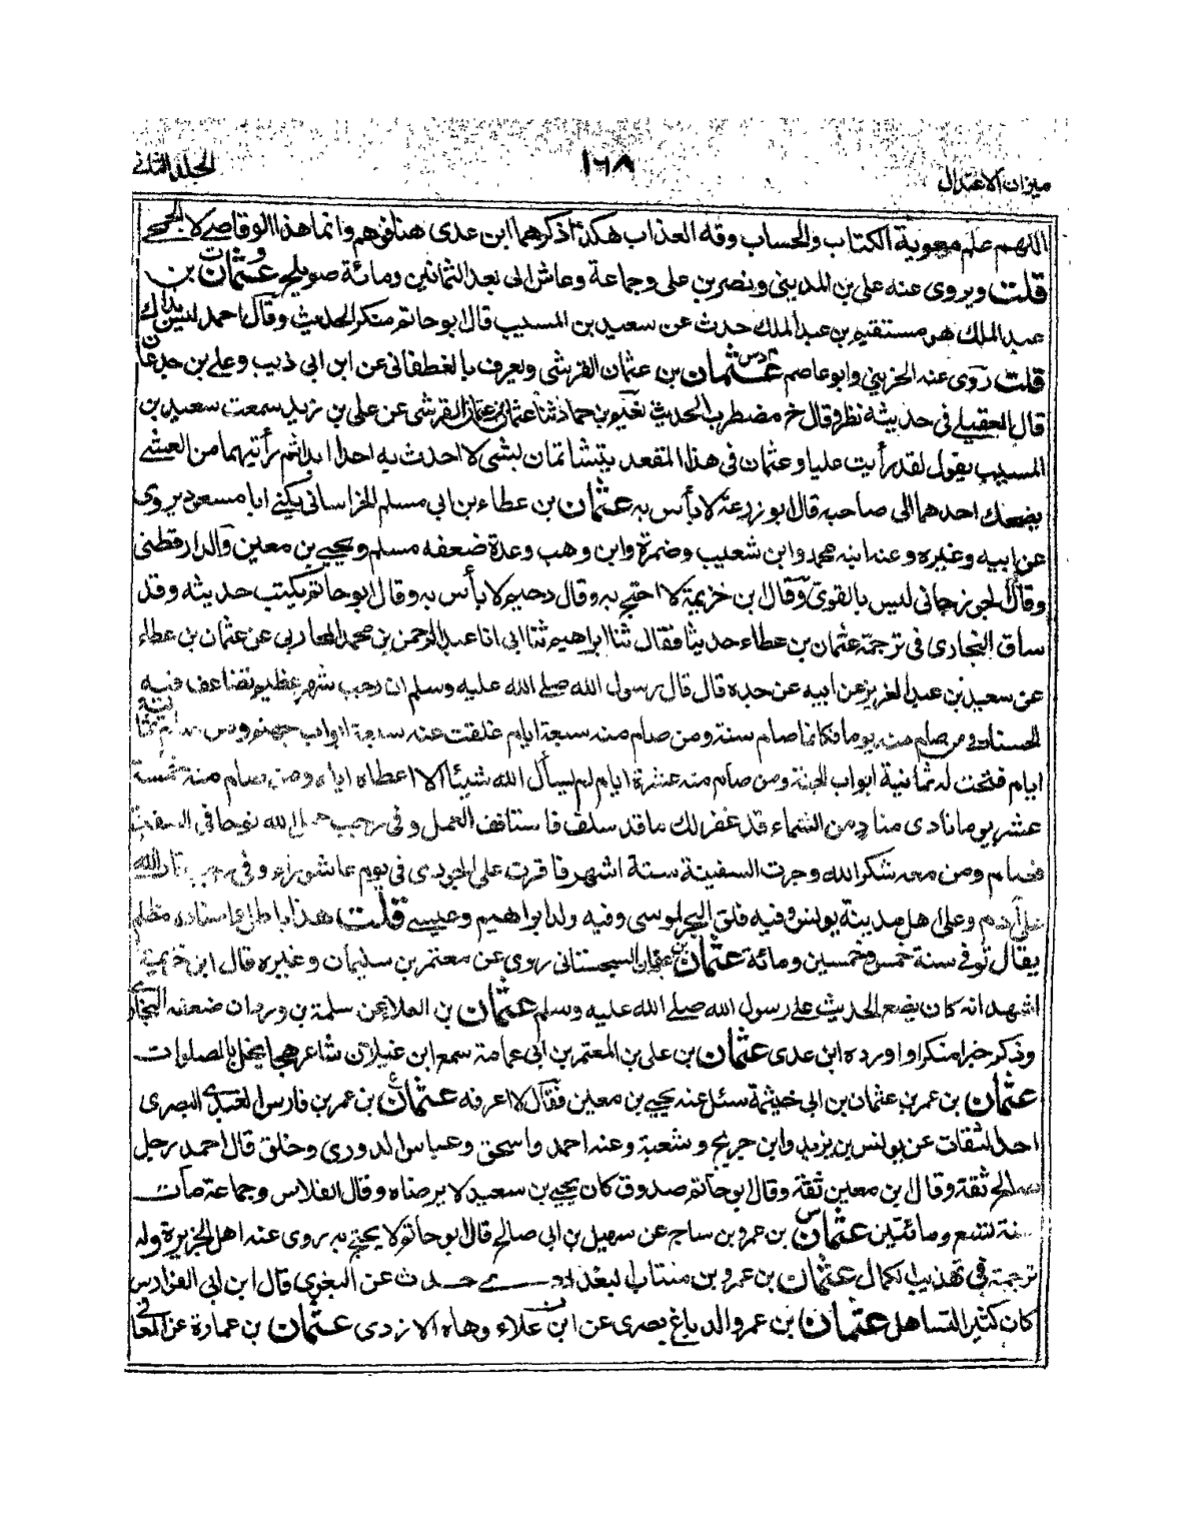 ميزان الاعتدال
١٦٨
الجلد الثانى
اللهم علم معوية الكتاب والحساب وقه العذاب هكذا ذكرهما ابن عدى هنا فوهم وانما هذا الوقاصى لا الجمحى
قلت ويروى عنه على بن المدينى ونصر بن على وجماعة وعاش الى بعد الثمانين ومائة صويلح عثمان بن
عبد الملك هو مستقيم بن عبد الملك حدث عن سعيد بن المسيب قال ابو حاتم منكر الحديث وقال احمد ليس بذاك
قلت روى عنه الخريبى وابو عاصم عثمان بن عثمان القرشى ويعرف بالغطفانى عن ابن ابى ذيب وعلى بن جدعان
قال العقيلى فى حديثه نظر وقال خ مضطرب الحديث نعيم بن حماد ثنا عثمان بن عثمان القرشى عن على بن زيد سمعت سعيد بن
المسيب يقول لقد رأيت عليا وعثمان فى هذا المقعد يتشاتمان بشى لا احدث به احدا ابدا ثم رأيتهما من العشى
يضحك احدهما الى صاحبه قال ابو زرعة لا بأس به عثمان بن عطاء بن ابى مسلم الخراسانى يكنى ابا مسعود يروى
عن ابيه وغيره وعنه ابنه محمد وابن شعيب وضمرة وابن وهب وعدة ضعفه مسلم ويحيى بن معين والدارقطنى
وقال الجوزجانى ليس بالقوى وقال ابن خزيمة لا احتج به وقال دحيم لا بأس به وقال ابو حاتم يكتب حديثه وقد
ساق البخارى فى ترجمة عثمان بن عطاء حديثا فقال ثنا ابراهيم ثنا ابى انا عبد الرحمن بن محمد المحاربى عن عثمان بن عطاء
عن سعيد بن عبد العزيز عن ابيه عن جده قال قال رسول الله صلى الله عليه وسلم ان رجب شهر عظيم تضاعف فيه
الحسنات من صام منه يوما فكانما صام سنة ومن صام منه سبعة ايام غلقت عنه سبعة ابواب جهنم ومن صام منه ثمانية
ايام فتحت له ثمانية ابواب الجنة ومن صام منه عشرة ايام لم يسأل الله شيئا الا اعطاه اياه ومن صام منه خمسة
عشر يوما نادى مناد من السماء قد غفر لك ما قد سلف فاستانف العمل وفى رجب حمل الله نوحا فى السفينة
فصام ومن معه شكرا لله وجرت السفينة ستة اشهر فاقرت على الجودى فى يوم عاشوراء وفى رجب تاب الله
على آدم وعلى اهل مدينة يونس وفيه فلق البحر لموسى وفيه ولد ابراهيم وعيسى قلت هذا باطل واسناده مظلم
يقال توفى سنة خمس وخمسين ومائة عثمان بن عفان السجستانى روى عن معتمر بن سليمان وغيره قال ابن خزيمة
اشهد انه كان يضع الحديث على رسول الله صلى الله عليه وسلم عثمان بن العلاء عن سلمة بن وردان ضعفه البخارى
وذكر خبرا منكرا واورده ابن عدى عثمان بن على بن المعتمر بن ابى عمامة سمع ابن غيلان شاعر هجا يخل بالصلوات
عثمان بن عمر بن عثمان بن ابى خيثمة سئل عنه يحيى بن معين فقال لا اعرفه عثمان بن عمر بن فارس العبدى البصرى
احد الثقات عن يونس بن يزيد وابن جريج وشعبة وعنه احمد واسحق وعباس الدورى وخلق قال احمد رجل
صالح ثقة وقال ابن معين ثقة وقال ابو حاتم صدوق كان يحيى بن سعيد لا يرضاه وقال الفلاس وجماعة مات
سنة تسع ومائتين عثمان بن عمرو بن ساج عن سهيل بن ابى صالح قال ابو حاتم لا يحتج به روى عنه اهل الجزيرة وله
ترجمة فى تهذيب الكمال عثمان بن عمرو بن منتاب البغدادى حدث عن البغوى قال ابن ابى الفوارس
كان كثير التساهل عثمان بن عمرو الدباغ بصرى عن ابن علاء وهاه الازدى عثمان بن عمارة عن المعافى